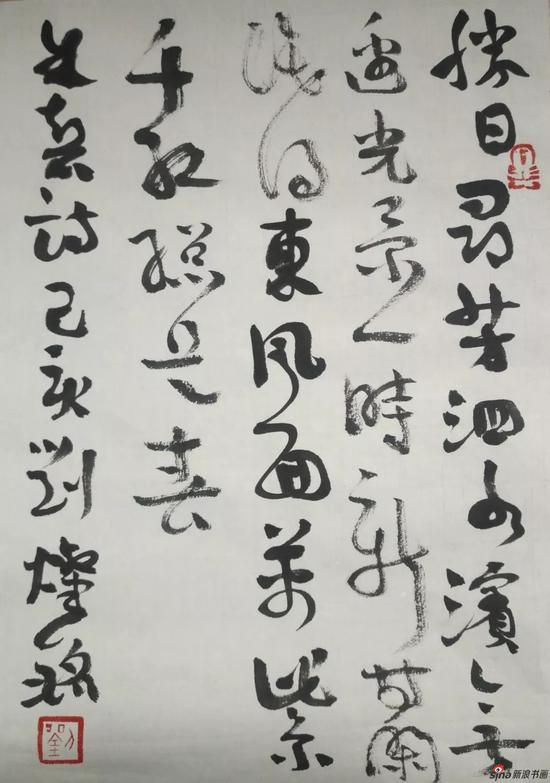 勝日尋芳泗水濱無
邊光景一時新等閑
識得東風面萬紫
千紅總是春
朱熹詩己亥劉燦銘
sina新浪书画